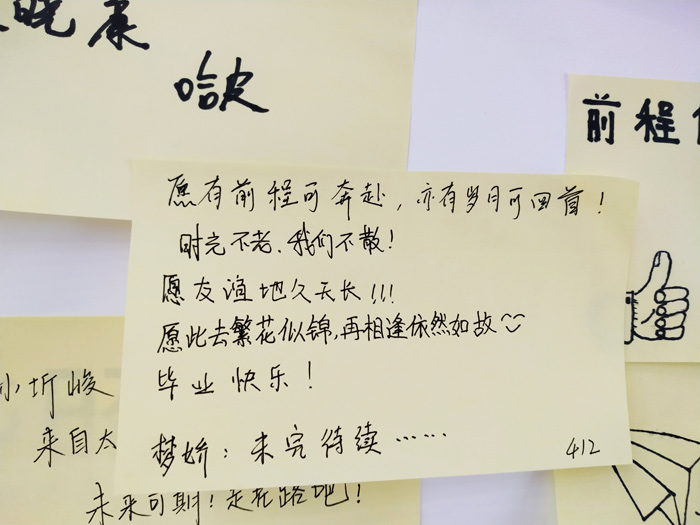 晓康
哈皮
前程
愿有前程可奔赴，亦有岁月可回首！
时光不老、我们不散！
愿友谊地久天长！！！
愿此去繁花似锦，再相逢依然如故
毕业快乐！
梦娇：未完待续……
412
小圻峻
来自太
未来可期！走花路吧！